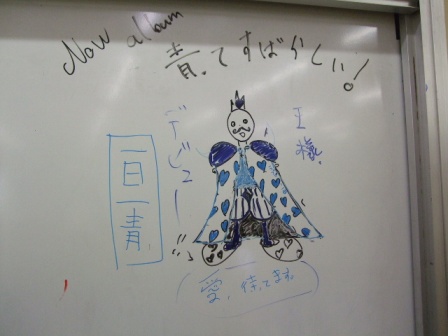 New album
青ってすばらしい!
デビュー
王様
一日一青
愛、待ってます